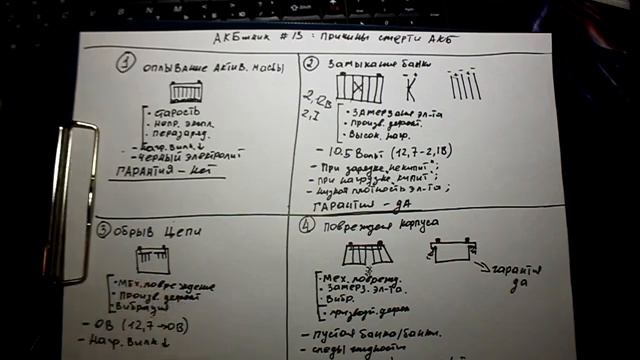 АКБшник #13: Причины смерти АКБ
1 оплывание актив. массы
• старость
• непр. экспл.
• перезаряд.
- нагр. вилк ↓
- черный электролит
Гарантия - нет
2 Замыкание банки
2,12В
• Замерзание эл-та
• произв. дефект.
• Высок. нагр.
- 10.5 Вольт (12,7-2,1В)
- При зарядке "не кипит";
- при нагрузке "кипит";
- низкая плотность эл-та;
Гарантия - дА
3 Обрыв цепи
• Мех. повреждение
• Произв. дефект
• Вибрация
- 0В (12,7→0В)
- Нагр. Вилк ↓
4 Поврежден корпуса
• Мех. поврежд.
• Замерз. эл-та.
• Вибр.
• произвот. дефек
→ гарантия
да
- пустая банка/банки.
- следы жидкости